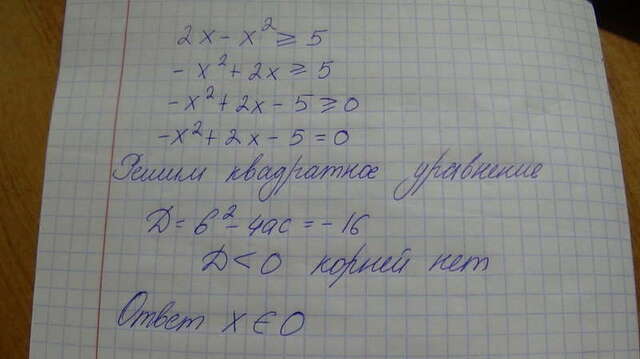 2x - x² ≥ 5
-x² + 2x ≥ 5
-x² + 2x - 5 ≥ 0
-x² + 2x - 5 = 0
Решим квадратное уравнение
D = b² - 4ac = -16
D < 0 корней нет
Ответ x ∈ 0